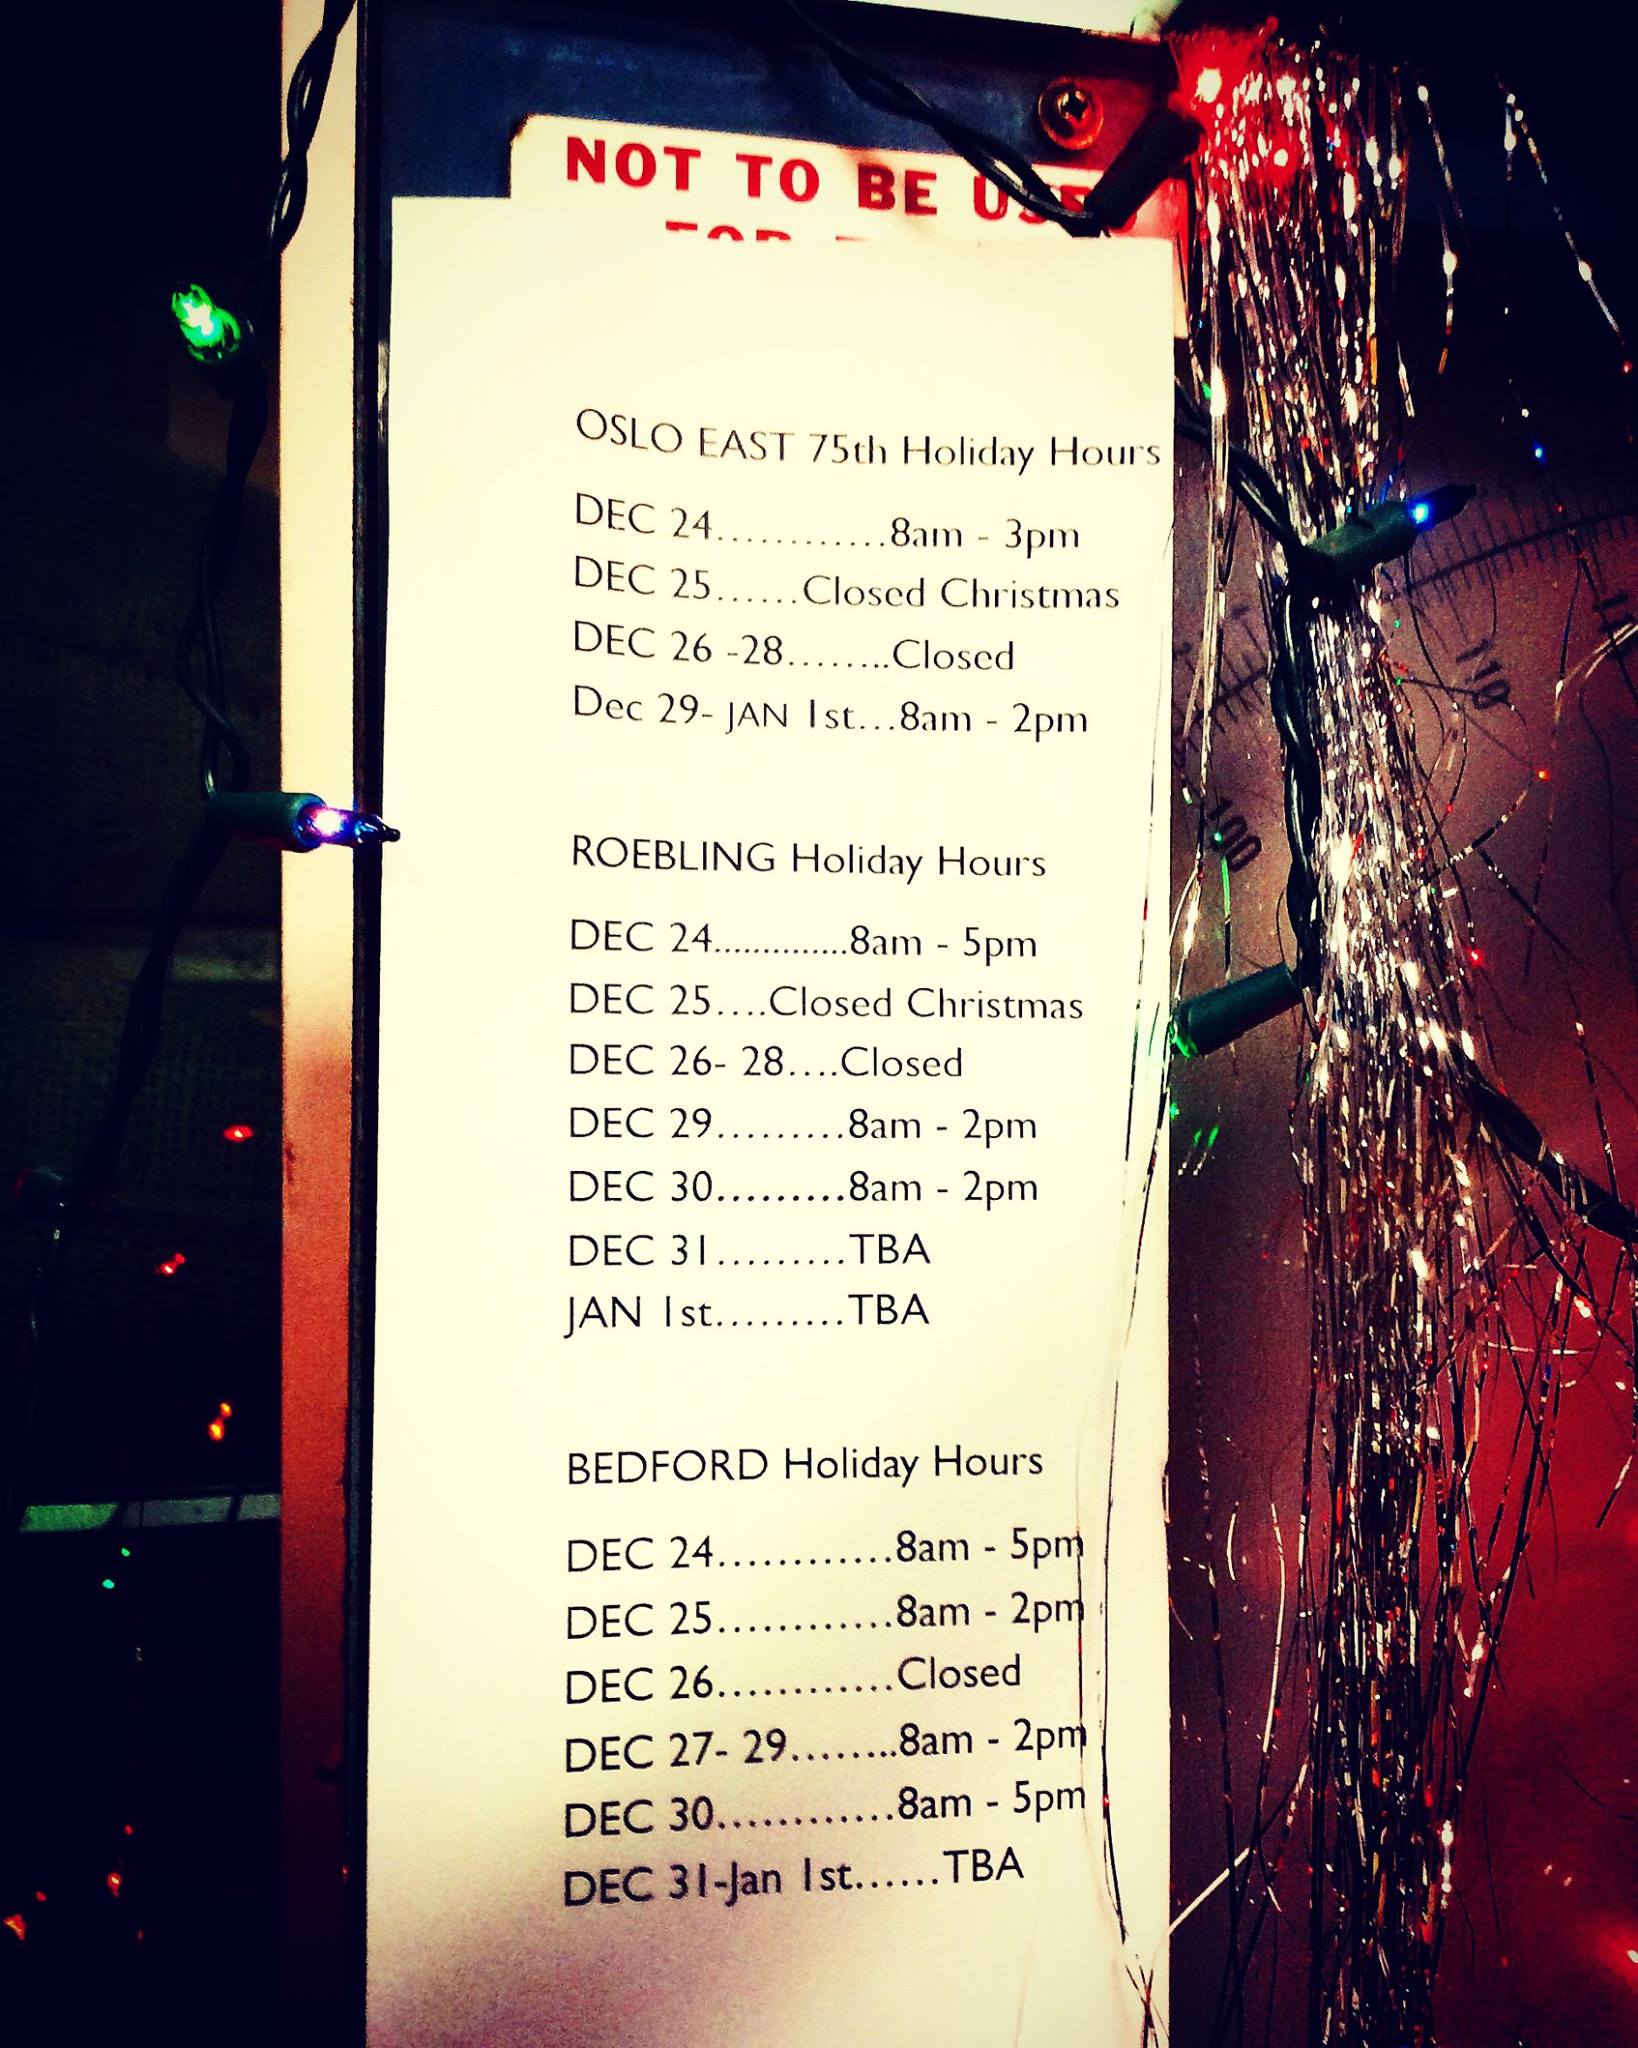 NOT TO BE
OSLO EAST 75th Holiday Hours
DEC 24............8am - 3pm
DEC 25......Closed Christmas
DEC 26 -28........Closed
Dec 29- JAN 1st...8am - 2pm
ROEBLING Holiday Hours
DEC 24.............8am - 5pm
DEC 25....Closed Christmas
DEC 26- 28....Closed
DEC 29.........8am - 2pm
DEC 30.........8am - 2pm
DEC 31.........TBA
JAN 1st.........TBA
BEDFORD Holiday Hours
DEC 24............8am - 5pm
DEC 25............8am - 2pm
DEC 26............Closed
DEC 27- 29........8am - 2pm
DEC 30............8am - 5pm
DEC 31-Jan 1st......TBA
110
100